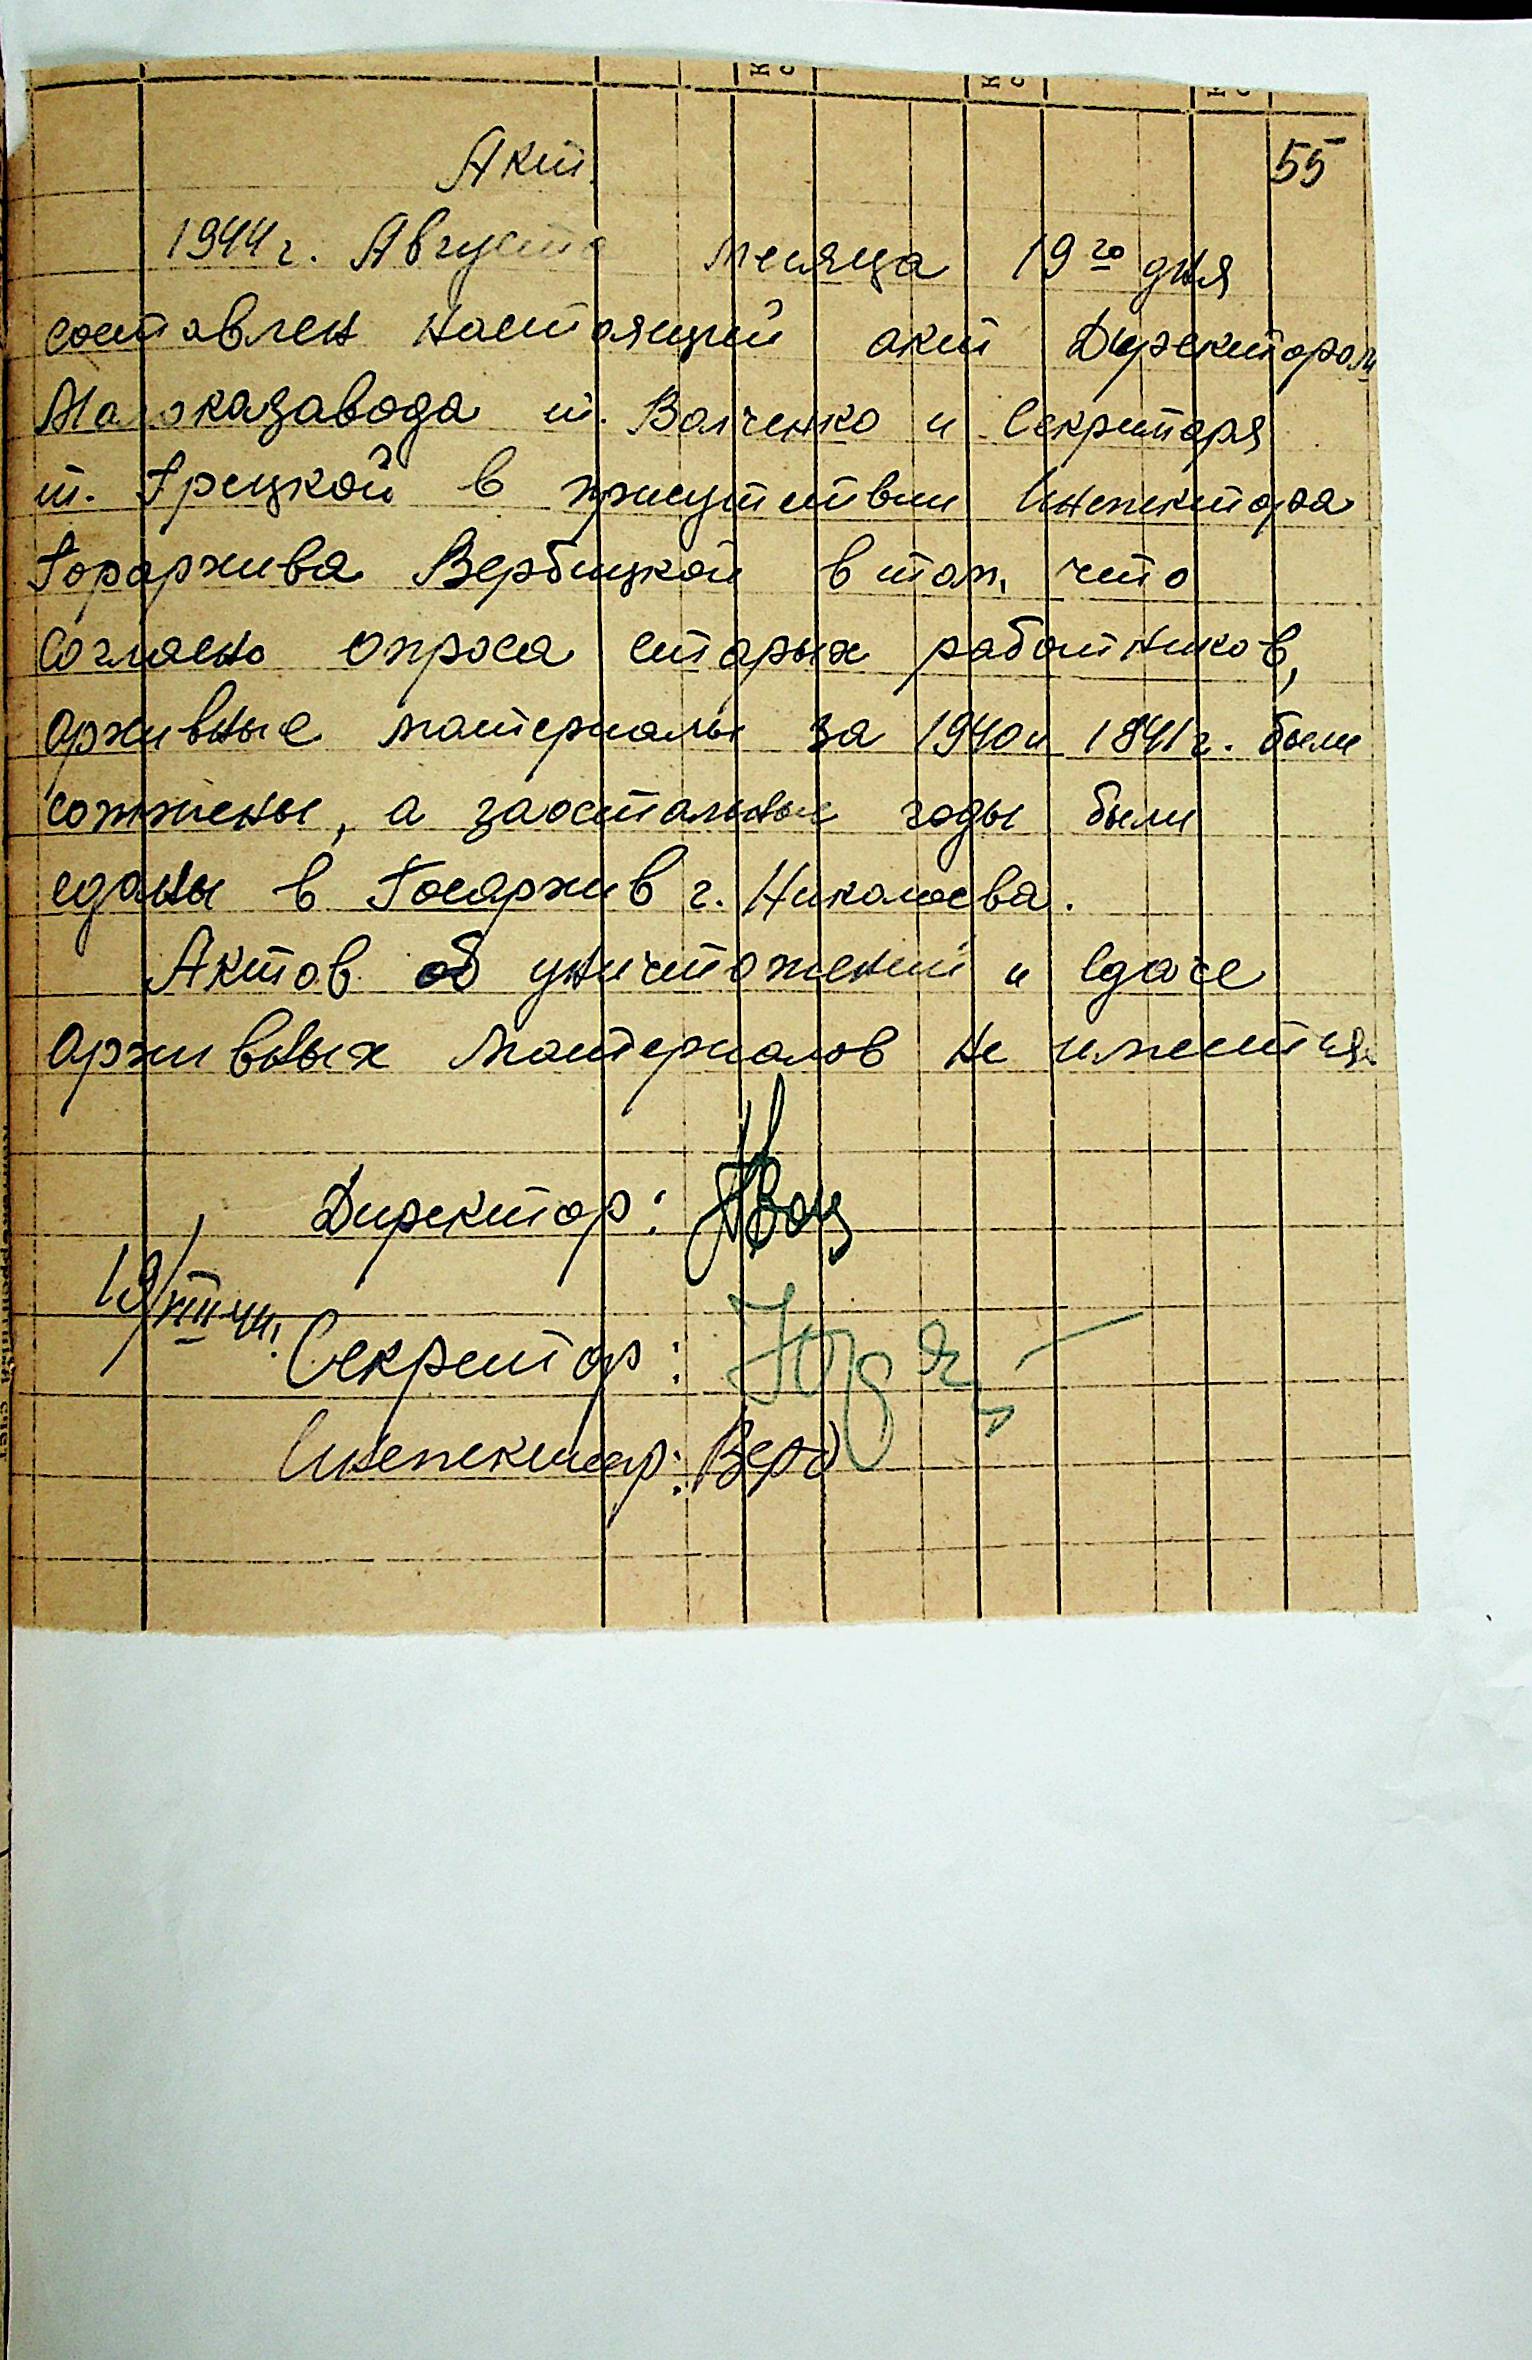 Акт.
55
1944 г. Августа месяца 19го дня
составлен настоящий акт Директором
Молоказавода т. Волченко и Секритаря
т. Грецкой в присутствии Инспектора
Горархива Вербицкой в том, что
согласно опроса старых работников,
архивные материалы за 1940 и 1841 г. были
сожжены, а заостальные годы были
сданы в Госархив г. Николаева.
Актов об уничтожений и сдаче
архивных материалов не имеется.
Директор:
19/VIII 44.
Секретарь:
Инспектор: Верб